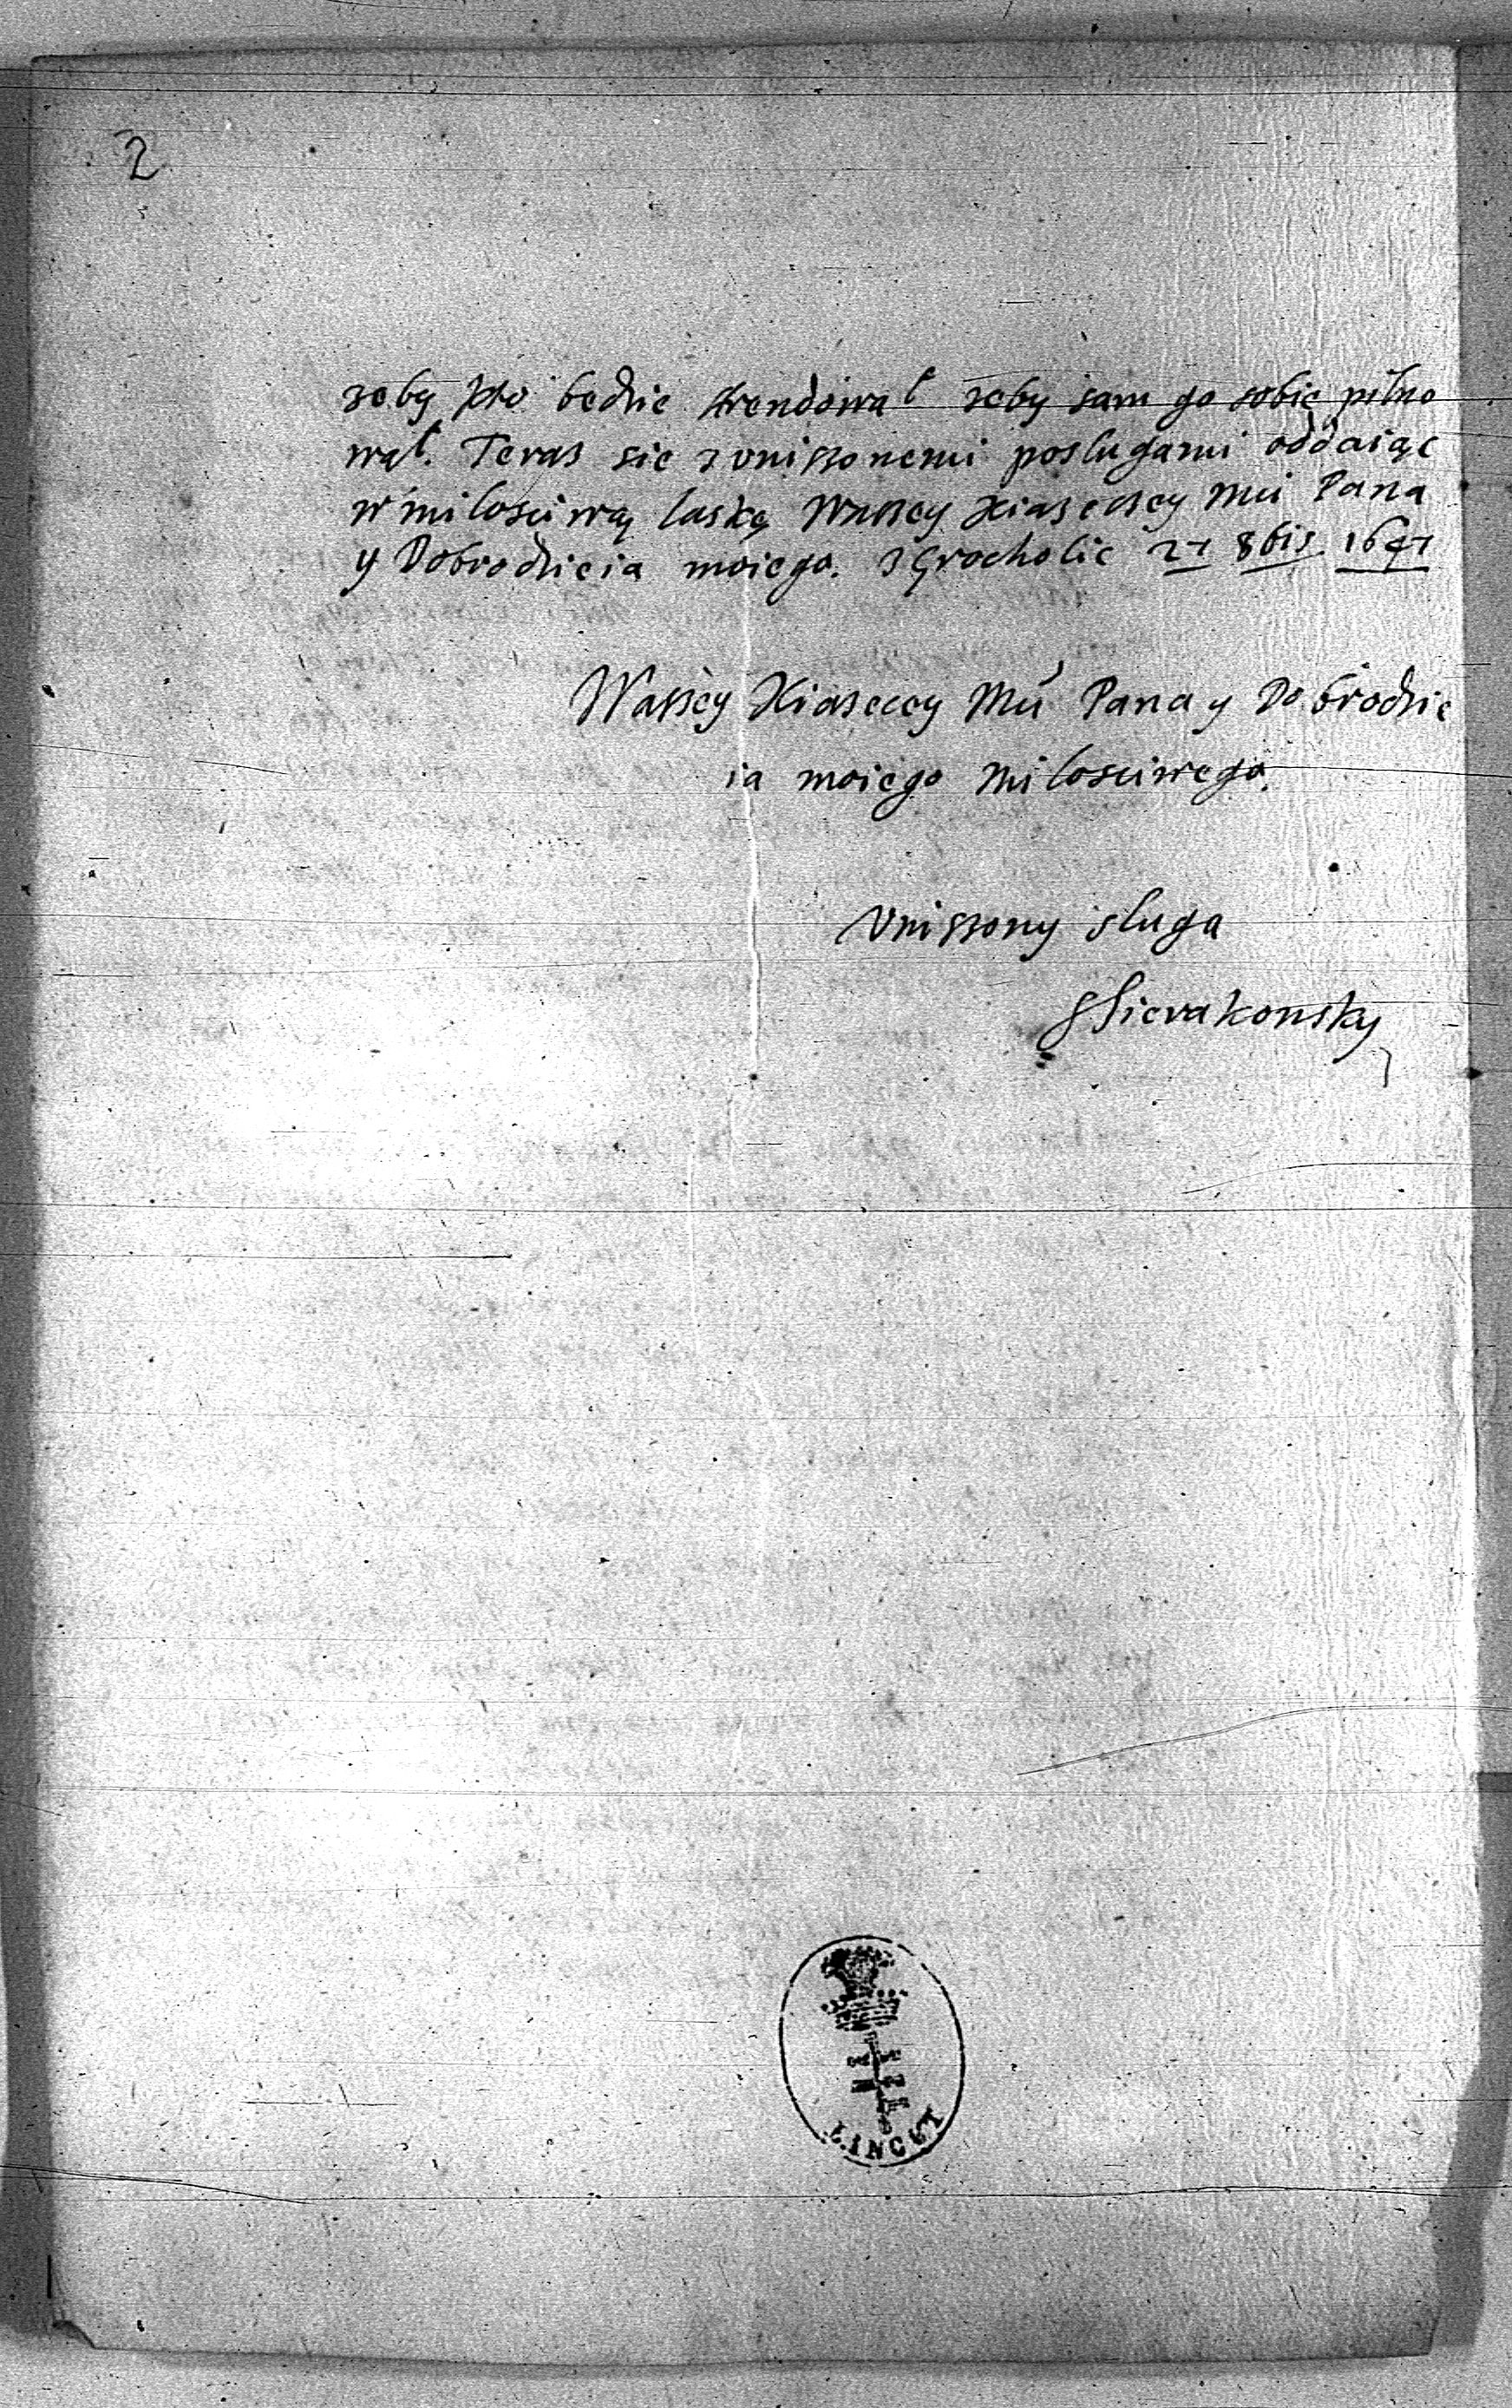 2
zeby kto będzie arendował zeby sam go sobie pilno
wał. Teras się z vniszonemi poslugami oddaiąc
w miłosciwą laskę Waszey Xiazecey Mci Pana
y Dobrodzieia moiego. z Grocholic 27 8bis 1647
Waszey Xiazecey Mci Pana y Dobrodzie
ia moiego Milosciwego.
Vniszony sluga
SSierakowsky
LINCET